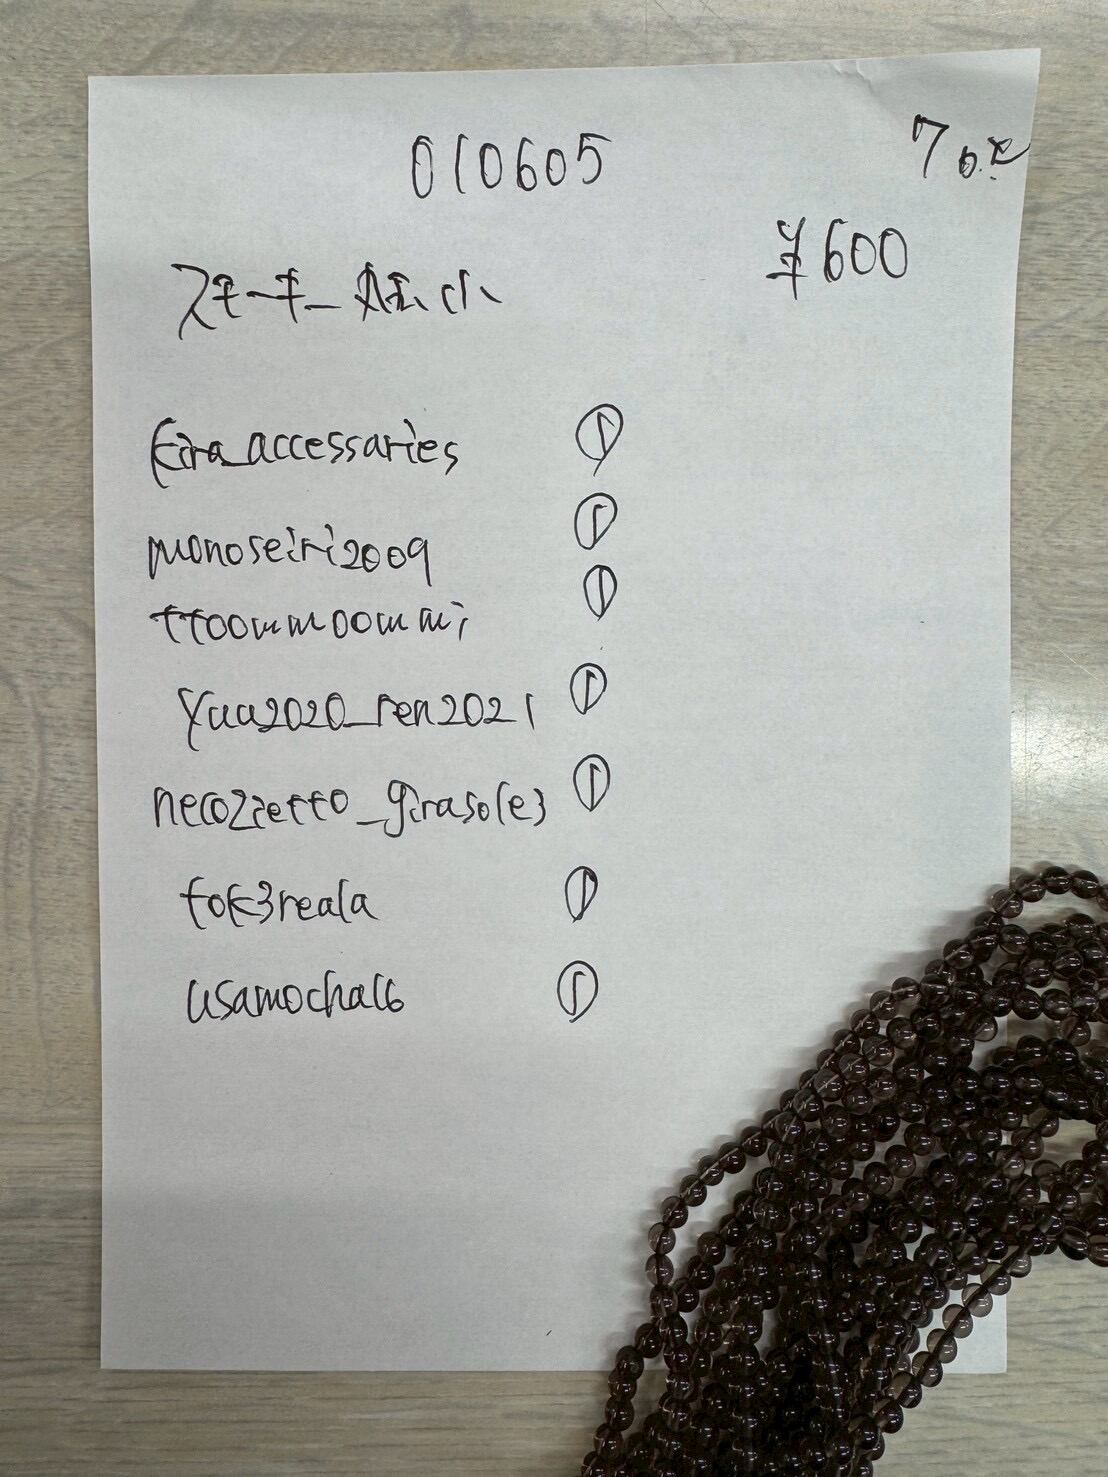 010605
¥600
kira_accessaries ①
monoseiri2009 ①
ttoommoommi ①
yuu2020_ren2021 ①
necozzetto_girasole3 ①
tok3reala ①
usamocha16 ①